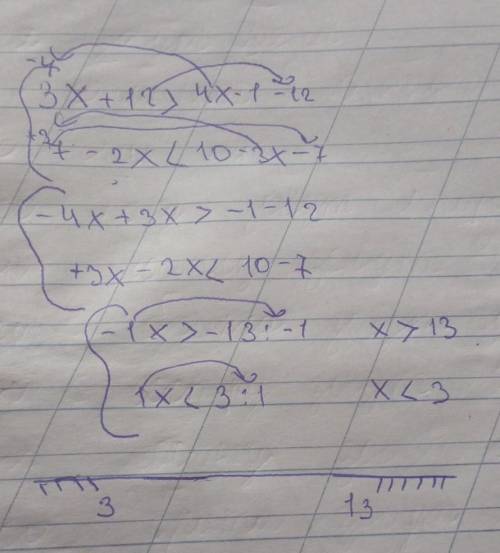 -4
3x + 12 > 4x - 1 - 12
+3
7 - 2x < 10 - 3x - 7
-4x + 3x > -1 - 12
+3x - 2x < 10 - 7
-1x > -13 : -1 x > 13
1x < 3 : 1 x < 3
3 13